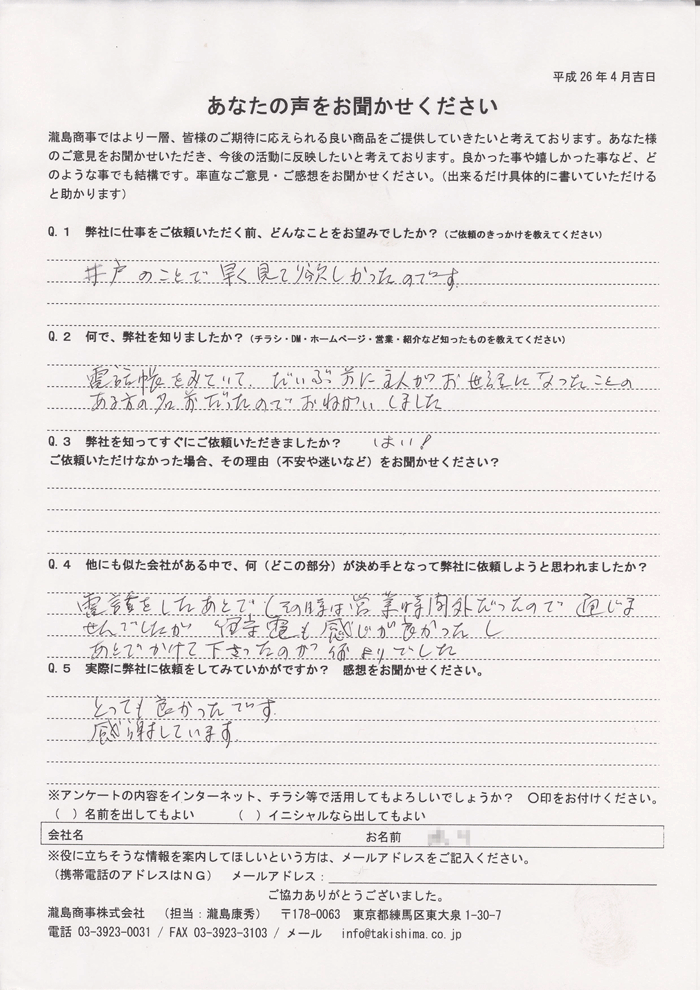 平成26年4月吉日
あなたの声をお聞かせください
瀧島商事ではより一層、皆様のご期待に応えられる良い商品をご提供していきたいと考えております。あなた様
のご意見をお聞かせいただき、今後の活動に反映したいと考えております。良かった事や嬉しかった事など、ど
のような事でも結構です。率直なご意見・ご感想をお聞かせください。（出来るだけ具体的に書いていただける
と助かります）
Q.1 弊社に仕事をご依頼いただく前、どんなことをお望みでしたか？（ご依頼のきっかけを教えてください）
井戸のことで早く見て欲しかったのです
Q.2 何で、弊社を知りましたか？（チラシ・DM・ホームページ・営業・紹介など知ったものを教えてください）
電話帳をみていて だいぶ前に主人がお世話になったことの
ある方の名前だったのでおねがいしました
Q.3 弊社を知ってすぐにご依頼いただきましたか？ はい！
ご依頼いただけなかった場合、その理由（不安や迷いなど）をお聞かせください？
Q.4 他にも似た会社がある中で、何（どこの部分）が決め手となって弊社に依頼しようと思われましたか？
電話をしたあとで（その時は営業時間外だったので 通じま
せんでしたが 留守電も感じが良かったし
あとでかけて下さったのが何よりでした
Q.5 実際に弊社に依頼をしてみていかがですか？ 感想をお聞かせください。
とっても良かったです
感謝しています
※アンケートの内容をインターネット、チラシ等で活用してもよろしいでしょうか？ ○印をお付けください。
（ ）名前を出してもよい （ ）イニシャルなら出してもよい
会社名 お名前
※役に立ちそうな情報を案内してほしいという方は、メールアドレスをご記入ください。
（携帯電話のアドレスはNG） メールアドレス：
ご協力ありがとうございました。
瀧島商事株式会社 （担当：瀧島康秀） 〒178-0063 東京都練馬区東大泉1-30-7
電話 03-3923-0031 / FAX 03-3923-3103 / メール info@takishima.co.jp